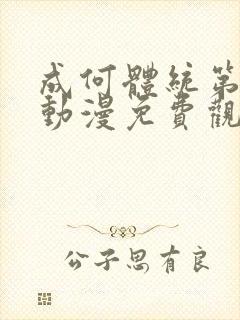 成何體統第
動漫免費觀
公子思有良